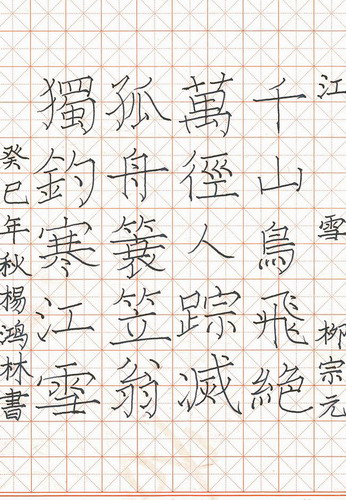 江雪 柳宗元
千山鳥飛絶
萬徑人踪滅
孤舟簑笠翁
獨釣寒江雪
癸巳年秋楊鴻林書